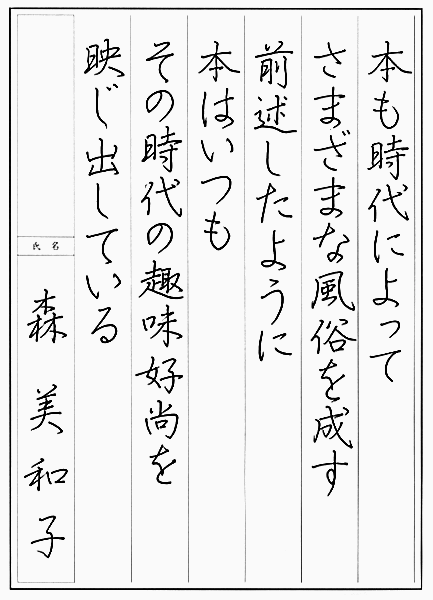 本も時代によって
さまざまな風俗を成す
前述したように
本はいつも
その時代の趣味好尚を
映じ出している
氏名
森美和子